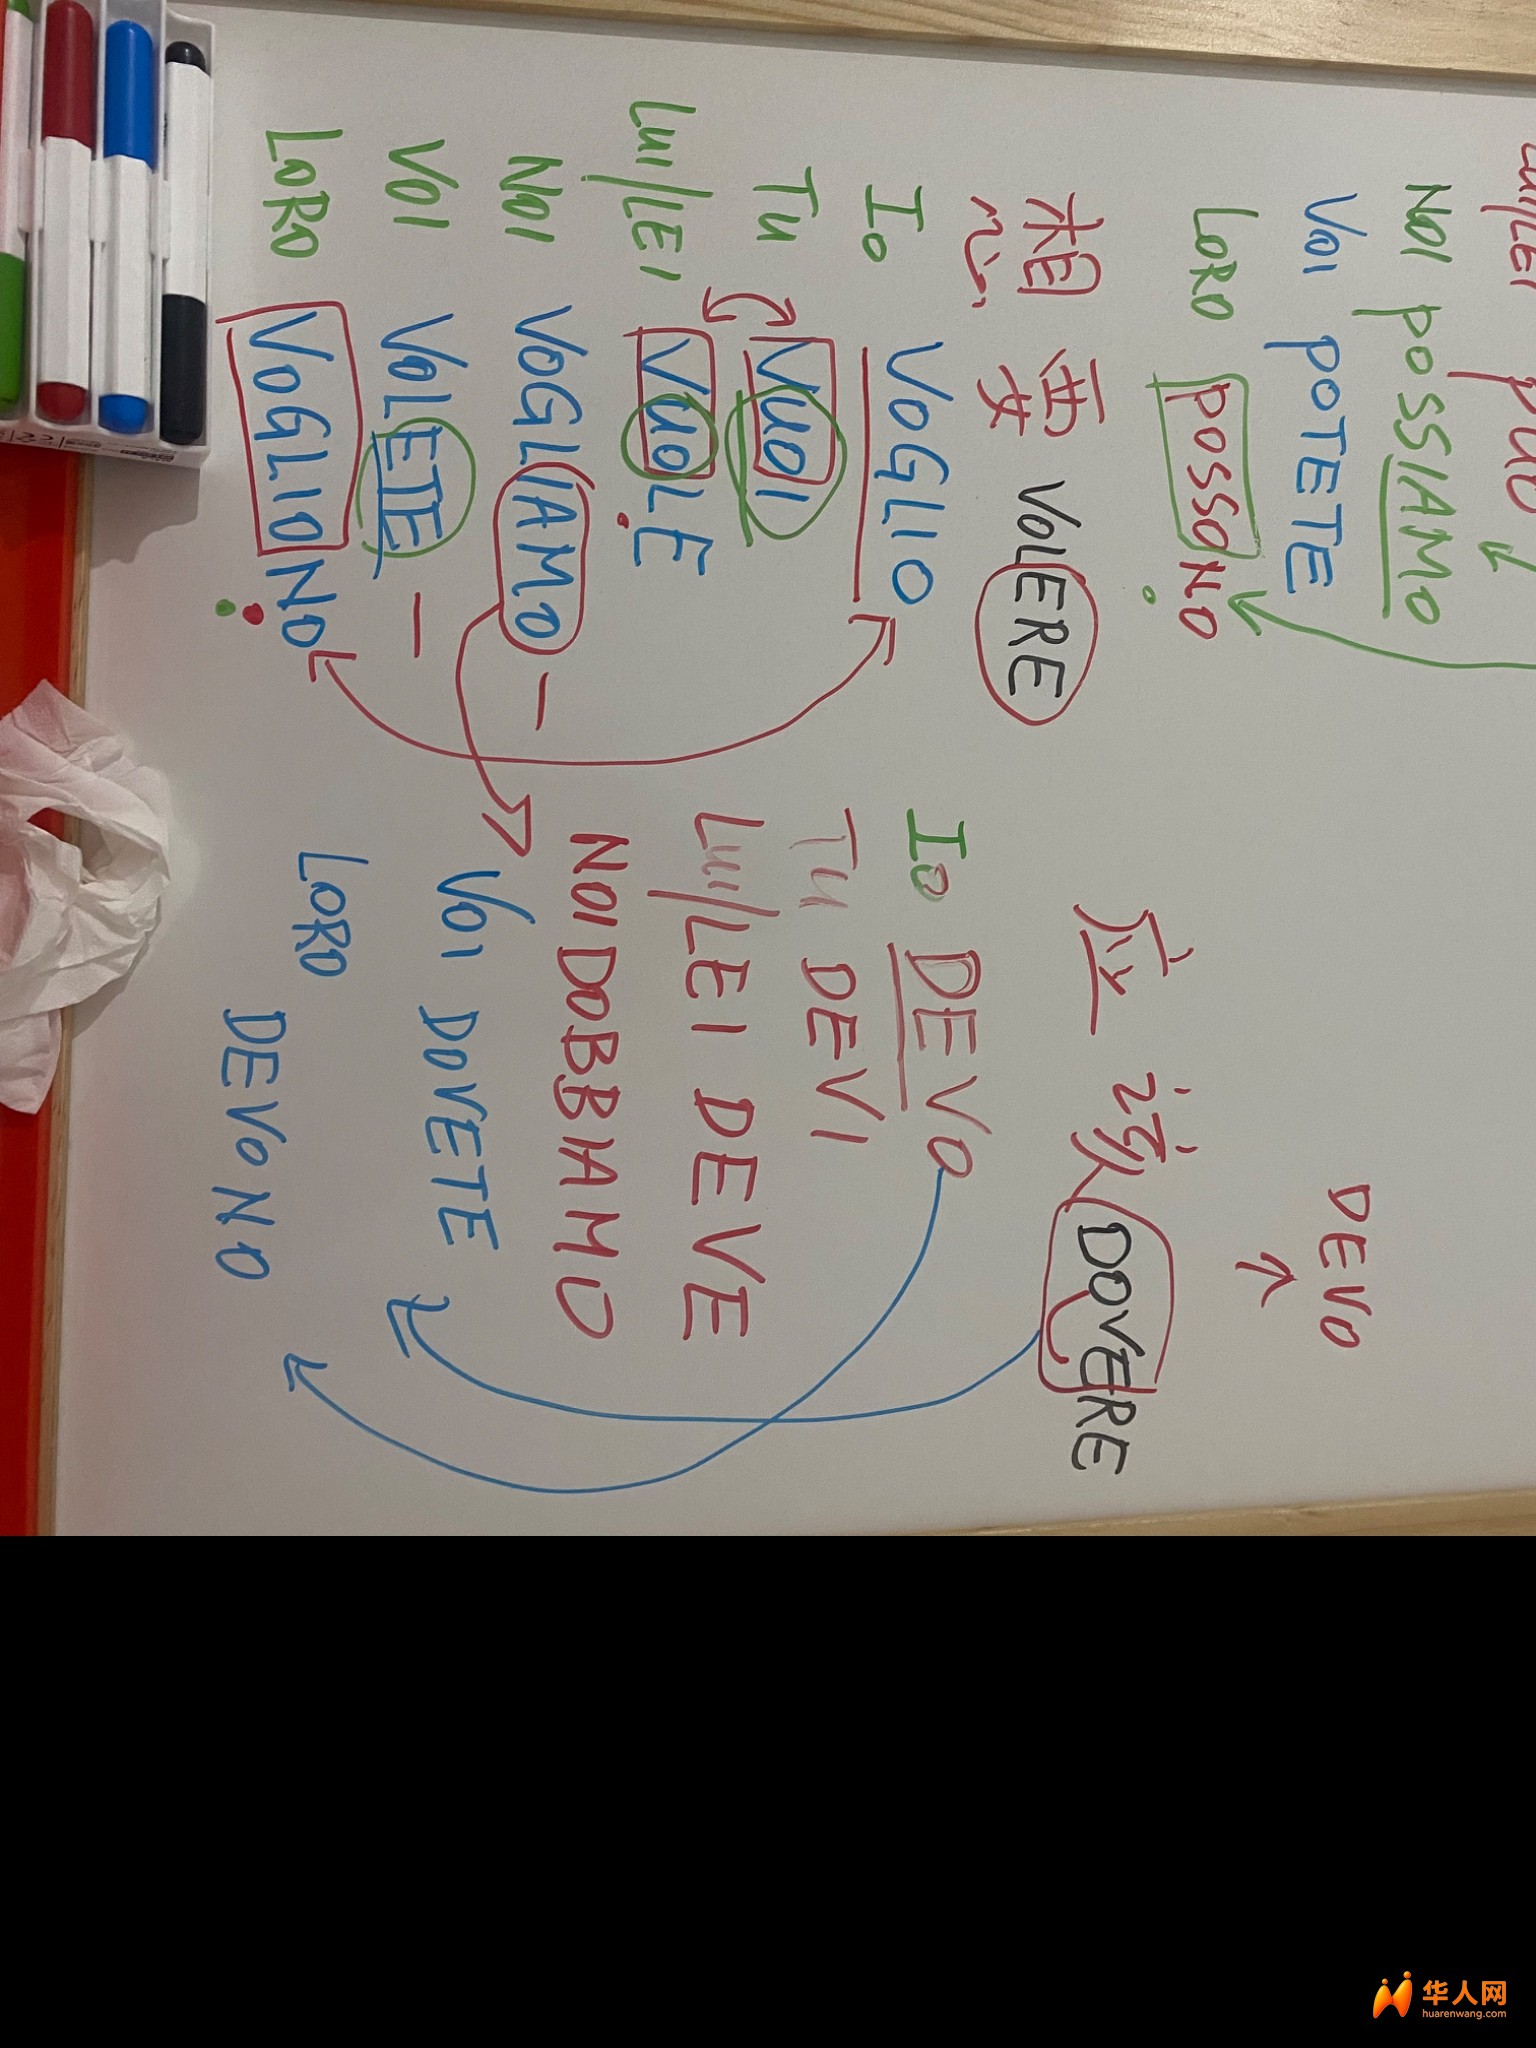 PUÒ
NOI POSSIAMO
VOI POTETE
LORO POSSONO
DEVO
想要 VOLERE
IO VOGLIO
TU VUOI
LUI/LEI VUOLE
NOI VOGLIAMO
VOI VOLETE
LORO VOGLIONO
应该 DOVERE
IO DEVO
TU DEVI
LUI/LEI DEVE
NOI DOBBIAMO
VOI DOVETE
LORO
DEVONO
华人网
huarenwang.com